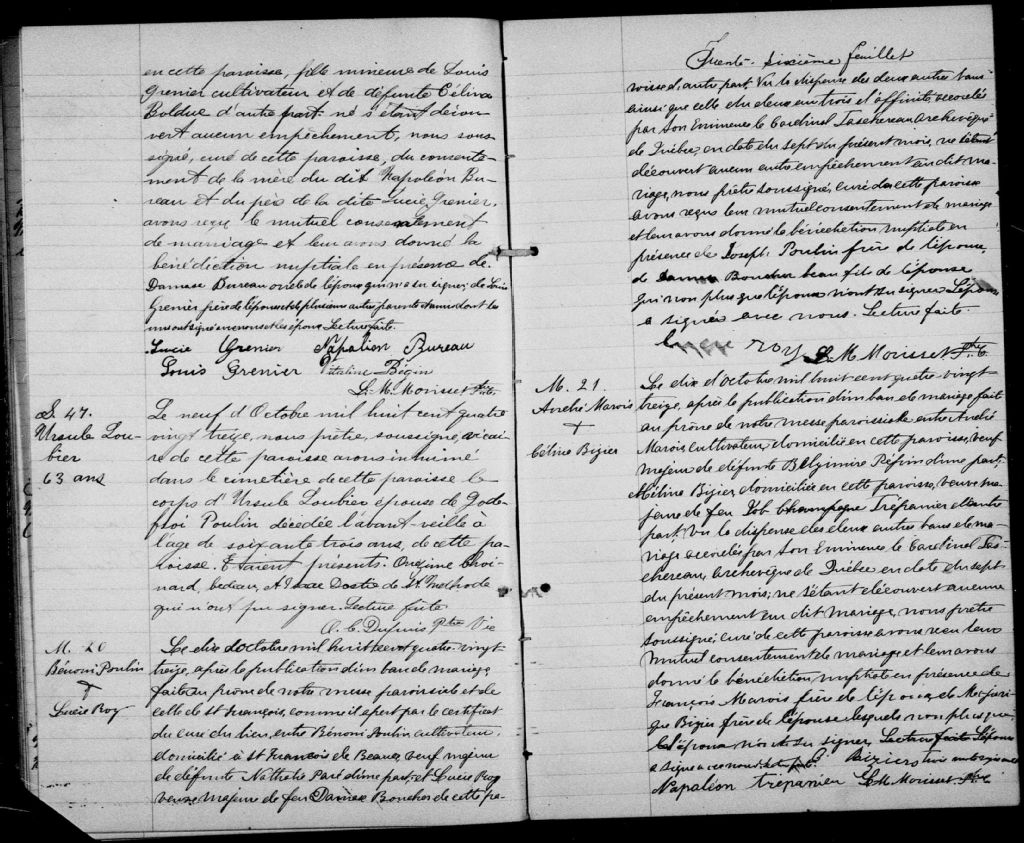 en cette paroisse, fille mineure de Louis
Grenier cultivateur et de défunte Célina
Bolduc d'autre part. ne s'étant décou-
vert aucun empêchement, nous sous-
signé, curé de cette paroisse, du consente-
ment de la mère du dit Napoléon Bu-
reau et du père de la dite Lucie Grenier,
avons reçu le mutuel consentement
de mariage et leur avons donné la
bénédiction nuptiale en présence de
Damase Bureau oncle de l'époux qui n'a su signer, de Louis
Grenier père de l'épouse et de plusieurs autres parents et amis dont les
uns ont signé avec nous et les époux Lecture faite.
Lucie Grenier Napalion Bureau
Louis Grenier Vitaline Bégin
L. M. Morisset Ptre
S. 47.
Ursule Lou-
bier
63 ans
Le neuf d'Octobre mil huit cent quatre
vingt treize, nous prêtre, soussigné, vicai-
re de cette paroisse avons inhumé
dans le cimetière de cette paroisse le
corps d'Ursule Loubier épouse de Gode-
froi Poulin décédée l'avant-veille à
l'âge de soixante trois ans, de cette pa-
roisse. Etaient présents. Onezime Choi-
nard, bedeau, et Isaac Dostie de St. Methode
qui n'ont pu signer. Lecture faite
O. C. Dupuis Ptre Vic
M. 20
Bénoni Poulin
+
Lucie Roy
Le dix d'octobre mil huit cent quatre-vingt
treize, après la publication d'un ban de mariage
faite au prône de notre messe paroissiale et de
celle de St François, comme il apert par le certificat
du curé du lieu, entre Bénoni Poulin cultivateur,
domicilié à St François de Beauce, veuf majeur
de défunte Nathalie Paré d'une part, et Lucie Roy
veuve majeure de feu Damase Boucher de cette pa-
Trente-sixième feuillet
roisse d'autre part, Vu la dispense des deux autres bans
ainsi que celle du deux au trois d'affinité, accordés
par Son Eminence le Cardinal Taschereau Archevêque
de Québec, en date du sept du présent mois, ne s'étant
découvert aucun autre empêchement au dit ma-
riage, nous prêtre soussigné, curé de cette paroisse
avons reçu leur mutuel consentement de mariage
et leur avons donné la bénédiction nuptiale en
présence de Joseph Poulin frère de l'époux,
de Boucher beau fils de l'épouse
qui non plus que l'époux n'ont su signer. L'épouse
a signée avec nous. Lecture faite.
roy L. M. Morisset Ptre
M. 21.
André Marois
+
Céline Bizier
Le dix d'octobre mil huit cent quatre vingt
treize, après la publication d'un ban de mariage faite
au prône de notre messe paroissiale entre André
Marois, cultivateur, domicilié en cette paroisse, veuf
majeur de défunte Pépin d'une part,
Céline Bizier, domiciliée en cette paroisse, veuve ma-
jeure de feu Job Champagne Trépanier d'autre
part. Vu la dispense des deux autres bans de ma-
riage accordés par Son Eminence le Cardinal Tas-
chereau, Archevêque de Québec en date du sept
du présent mois; ne s'étant découvert aucun
empêchement au dit mariage, nous prêtre
soussigné, curé de cette paroisse avons reçu leur
mutuel consentement de mariage et leur avons
donné la bénédiction nuptiale en présence de
François Marois frère de l'époux, de
Bizier frère de l'épouse lesquels non plus que
l'époux n'ont su signer. Lecture faite L'épouse
a signé avec nous.
Napaléon trépanier L. M. Morisset Ptre